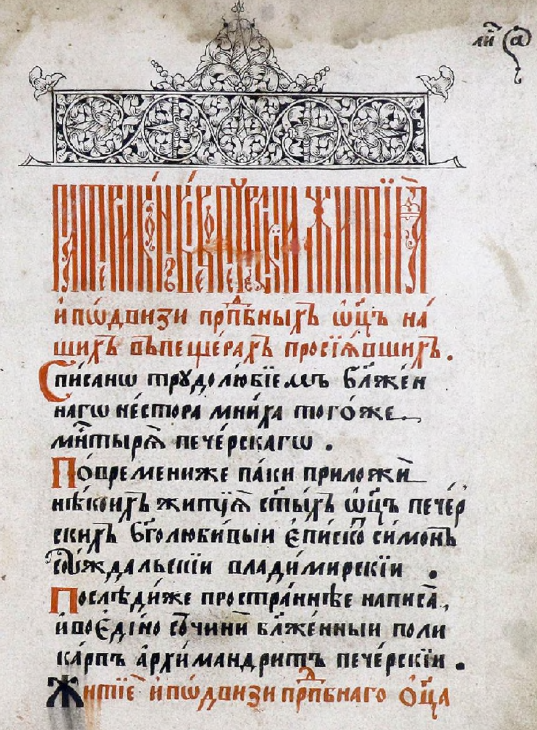 ли҃ а҃
Патерикъ киевопечерскии житиѧ
и пѡдвизи прпⷣбныхъ ѻц҃ъ на
шихъ въ пещерахъ просиѧвшихъ.
Списанѡ трудолюбїемъ бл҃жен
нагѡ нестора мниха тогоже
мн҃тырѧ печерскагѡ .
По времени же паки приложи
нѣкоихъ житїѧ ст҃ыхъ ѻц҃ъ печер
скихъ бг҃олюбивыи епискⷪ҇пъ симонъ
суждальскїи владимирскїи .
Послѣди же пространнѣе написа,
и во едино сочини бл҃женныи поли
карпъ архимандритъ печерскїи .
Житїе и пѡдвизи прпⷣбнаго ѻц҃а